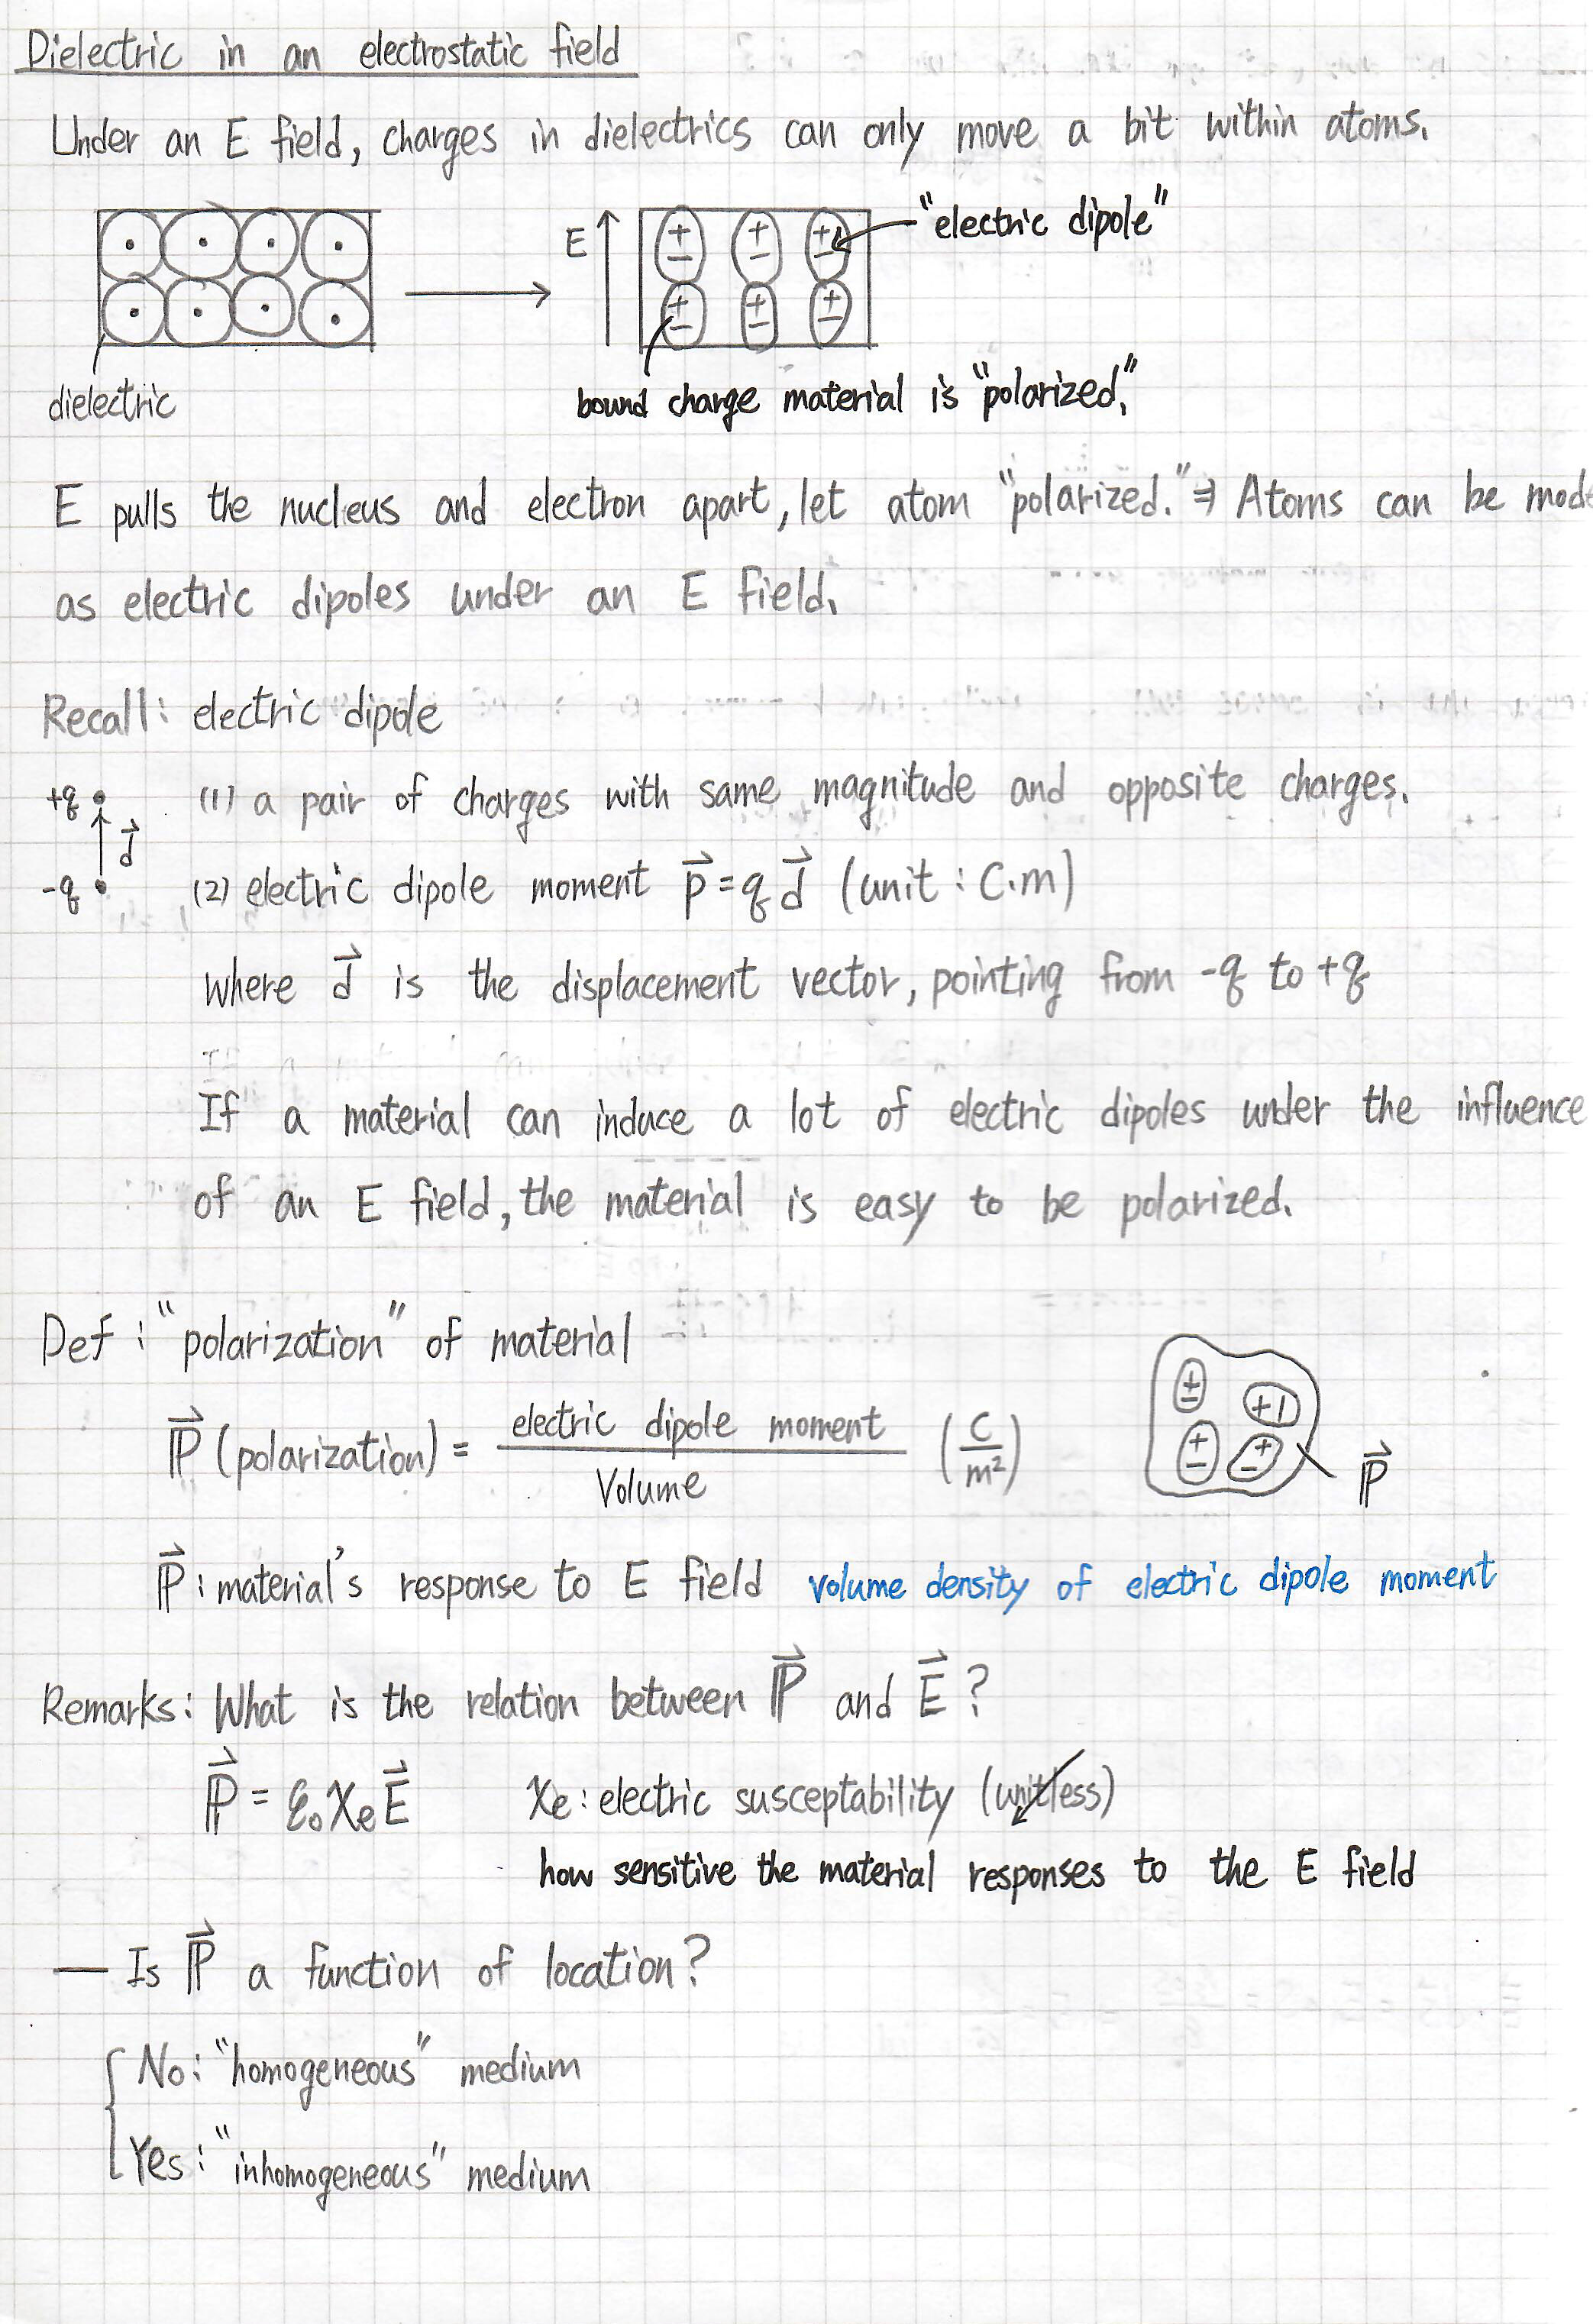 Dielectric in an electrostatic field
Under an E field, charges in dielectrics can only move a bit within atoms.
E
"electric dipole"
dielectric
bound charge material is "polarized."
E pulls the nucleus and electron apart, let atom "polarized." ⇒ Atoms can be mode
as electric dipoles under an E field.
Recall: electric dipole
+q
(1) a pair of charges with same magnitude and opposite charges.
d⃗
-q
(2) electric dipole moment p⃗ = q d⃗ (unit : C·m)
where d⃗ is the displacement vector, pointing from -q to +q
If a material can induce a lot of electric dipoles under the influence
of an E field, the material is easy to be polarized.
Def : "polarization" of material
P⃗ (polarization) = electric dipole moment / Volume (C/m²)
P⃗
P⃗ : material's response to E field volume density of electric dipole moment
Remarks: What is the relation between P⃗ and E⃗ ?
P⃗ = ε₀ χe E⃗ χe : electric susceptability (unitless)
how sensitive the material responses to the E field
— Is P⃗ a function of location?
No: "homogeneous" medium
Yes: "inhomogeneous" medium